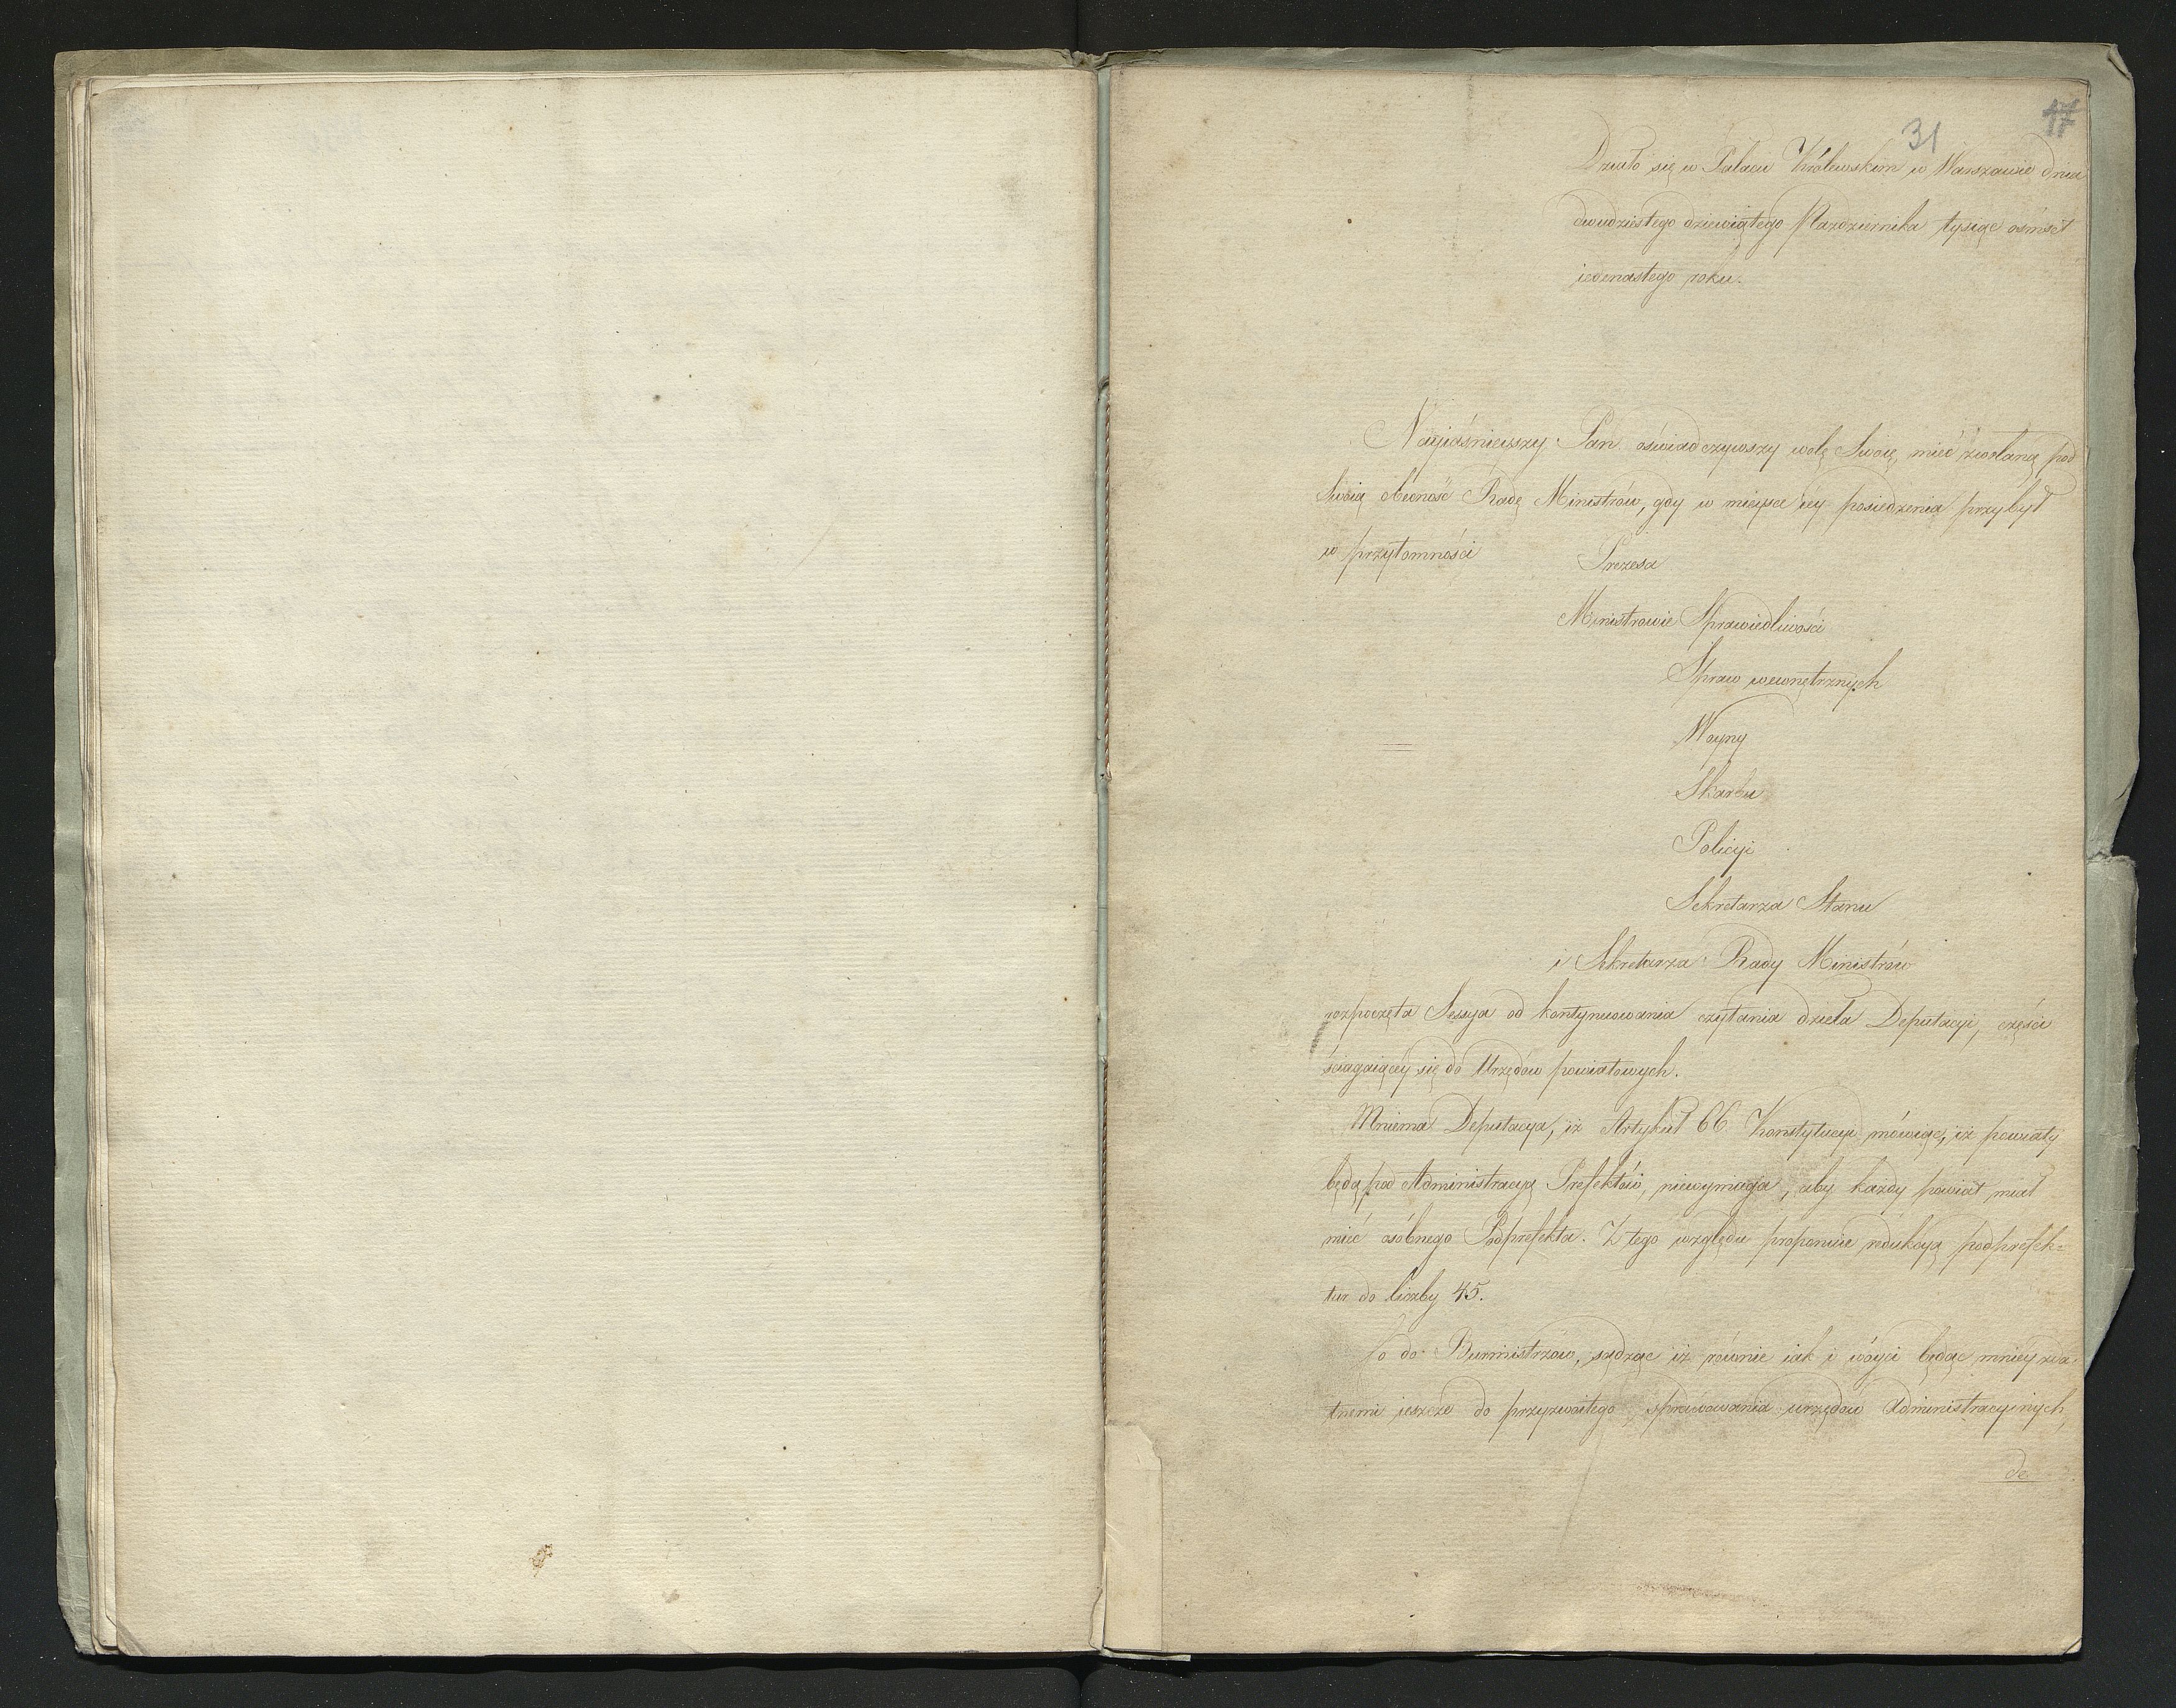 17
31
Działo się w Pałacu Królewskim w Warszawie dnia
dwudziestego dziewiątego Pazdziernika tysiąc osmset
iedenastego roku.
Nayjaśnieyszy Pan oświadczywszy wolę Swoię, mieć zwołaną pod
Swoią obecność Radę Ministrów, gdy w mieysce iey posiedzenia przybył
w przytomności Prezesa
Ministrowie Sprawiedliwości
Spraw wewnętrznych
Woyny
Skarbu
Policyi
Sekretarza Stanu
i Sekretarza Rady Ministrów
rozpoczęta Sessya od kontynuowania czytania dzieła Deputacyi, części
ściągaiącéy się do Urzędów powiatowych.
Mniema Deputacya, iż Artykuł 66 Konstytucyi mówiąc, iż powiaty
będą pod Administracyą Prefektów, niewymaga, aby każdy powiat miał
mieć osóbnego Podprefekta. Z tego względu proponuie redukcyą podprefek=
tur do liczby 45.
Co do Burmistrzów, sądząc iż równie iak i wóyci będąc mniey zda=
tnemi jeszcze do przyzwoitego sprawowania urzędów Administracyinych,
de